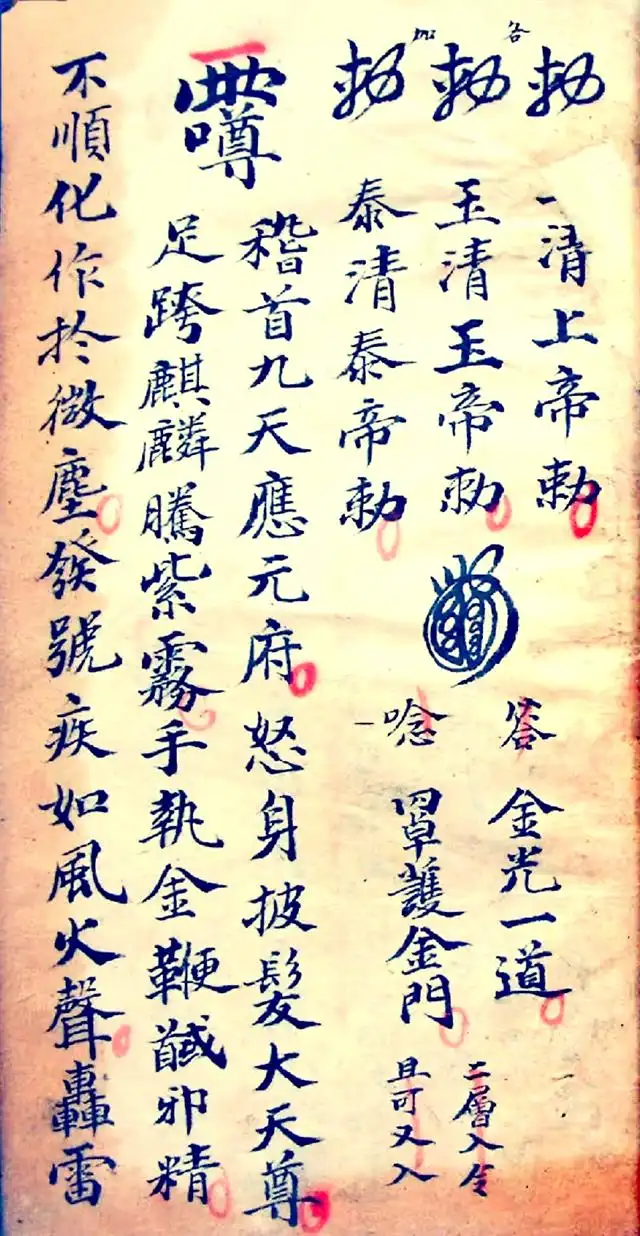 勅 一清上帝勅
勅 玉清玉帝勅
勅 泰清泰帝勅
答 金光一道
唸 罩護金門
二層入令
且可又入
稽首九天應元府怒身披髮大天尊
足跨麒麟騰紫霧手執金鞭馘邪精
不順化作於微塵發號疾如風火聲轟雷